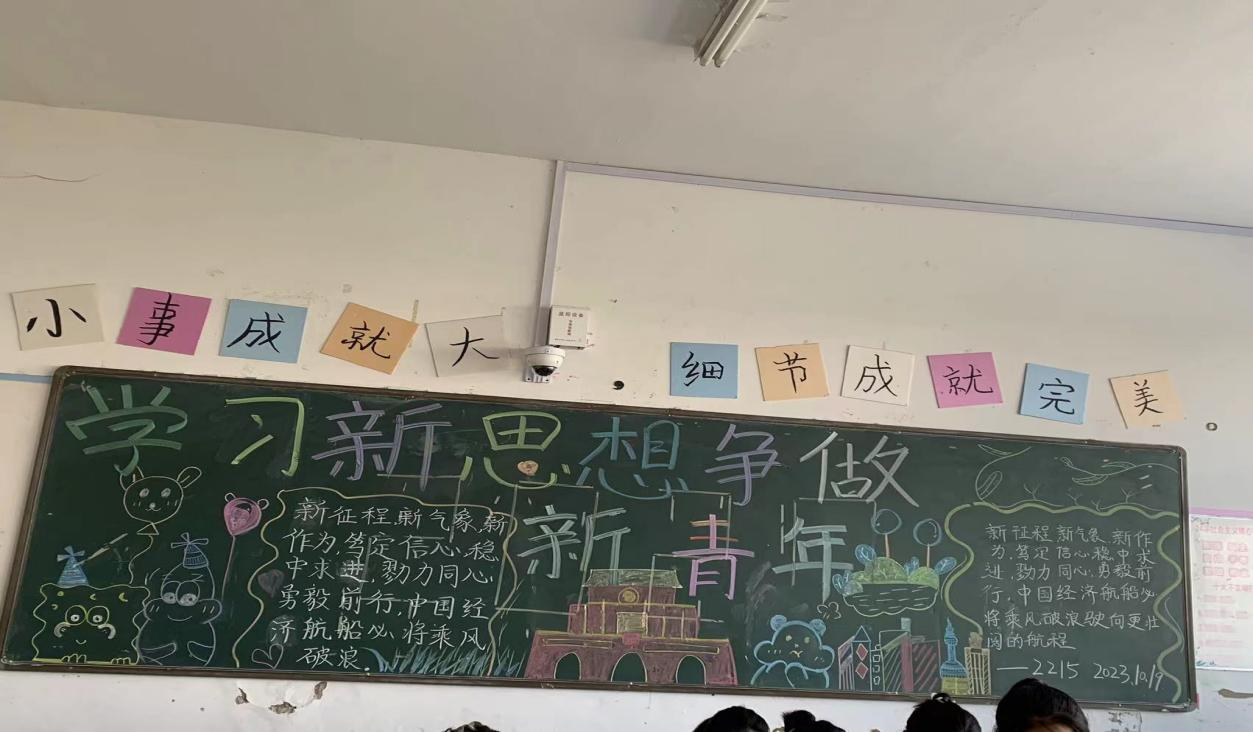 小事成就大
细节成就完美
监控设备
学习新思想争做
新青年
新征程,新气象,新
作为,笃定信心,稳
中求进,勠力同心,
勇毅前行,中国经
济航船必将乘风
破浪.
新征程新气象、新作
为,笃定信心稳中求
进,勠力同心,勇毅前
行,中国经济航船必
将乘风破浪驶向更壮
阔的航程
—2215 2023.10.19